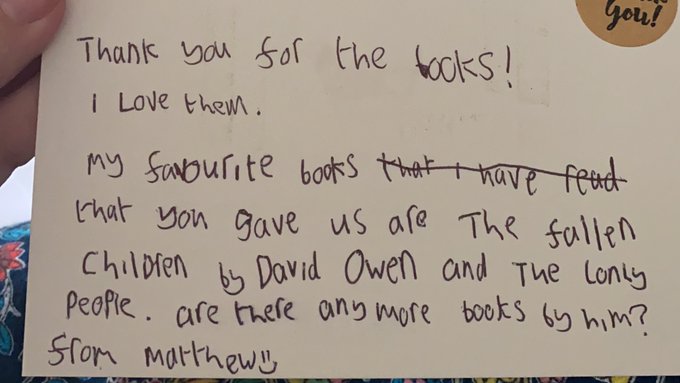 You!
Thank you for the books!
I Love them.
My favourite books ~~that I have read~~
that you gave us are The fallen
Children by David Owen and The Lonly
People. are there any more books by him?
from matthew☺